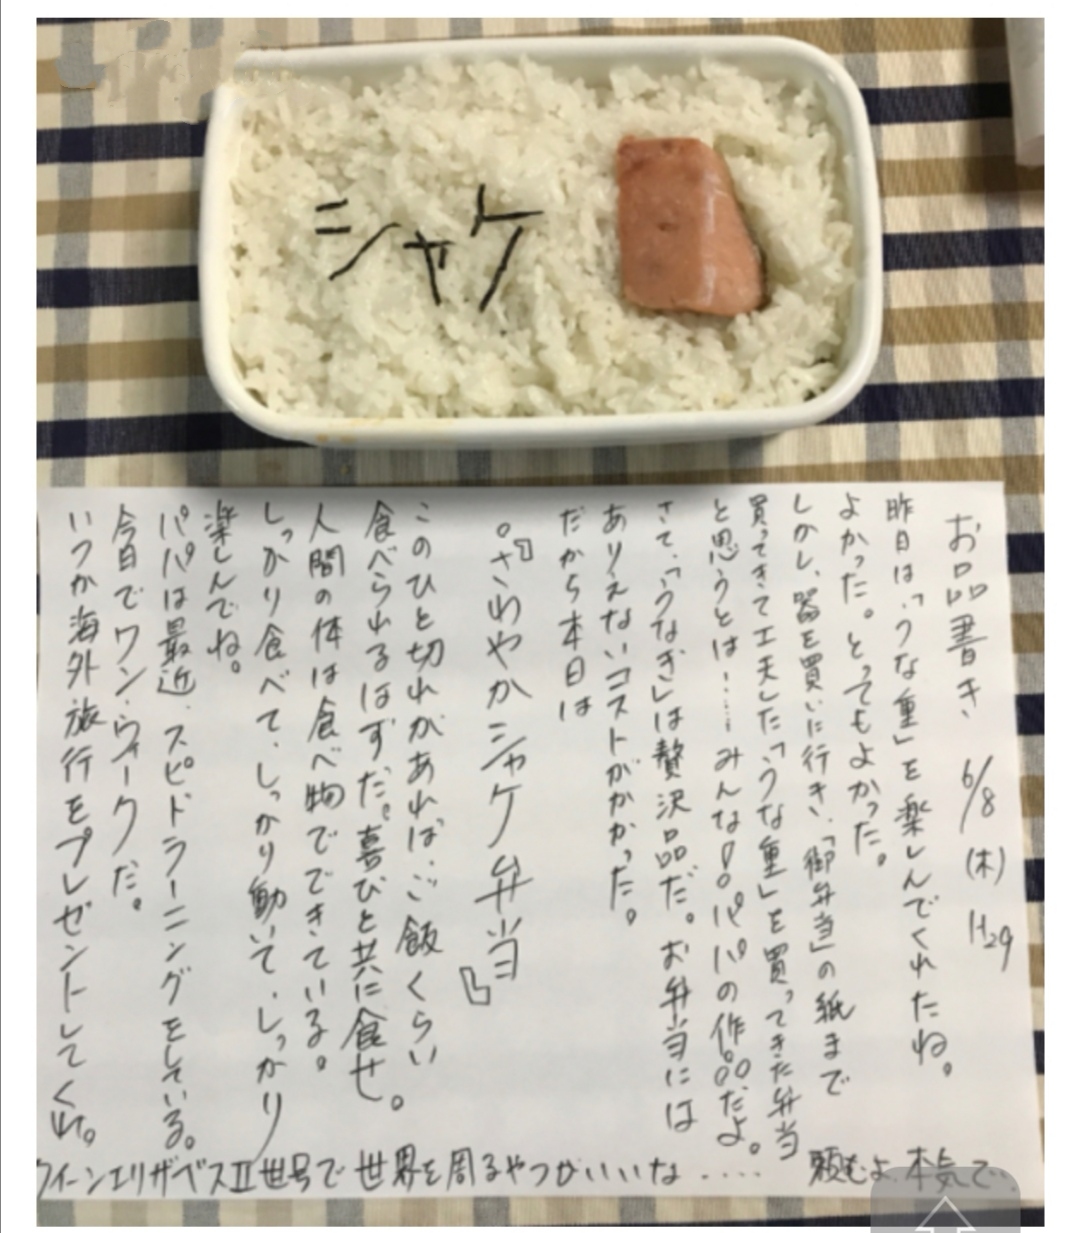 シャケ
お品書き 6/8(木) H29
昨日は「うな重」を楽しんでくれたね。
よかった。とってもよかった。
しかし、器を買いに行き、「御弁当」の紙まで
買ってきて工夫した「うな重」を買ってきた弁当
と思うとは……みんな!!パパの作品だよ。
さて、「うなぎ」は贅沢品だ。お弁当には
ありえないコストがかかった。
だから本日は
。『さわやかシャケ弁当』
このひと切れがあれば、ご飯くらい
食べられるはずだ。喜びと共に食せ。
人間の体は食べ物でできている。
しっかり食べて、しっかり動いて、しっかり
楽しんでね。
パパは最近、スピドラーニングをしている。
今日でワン・ウィークだ。
いつか海外旅行をプレゼントしてくれ。
クイーンエリザベスII世号で世界を周るやつがいいな‥‥ 頼むよ 本気で